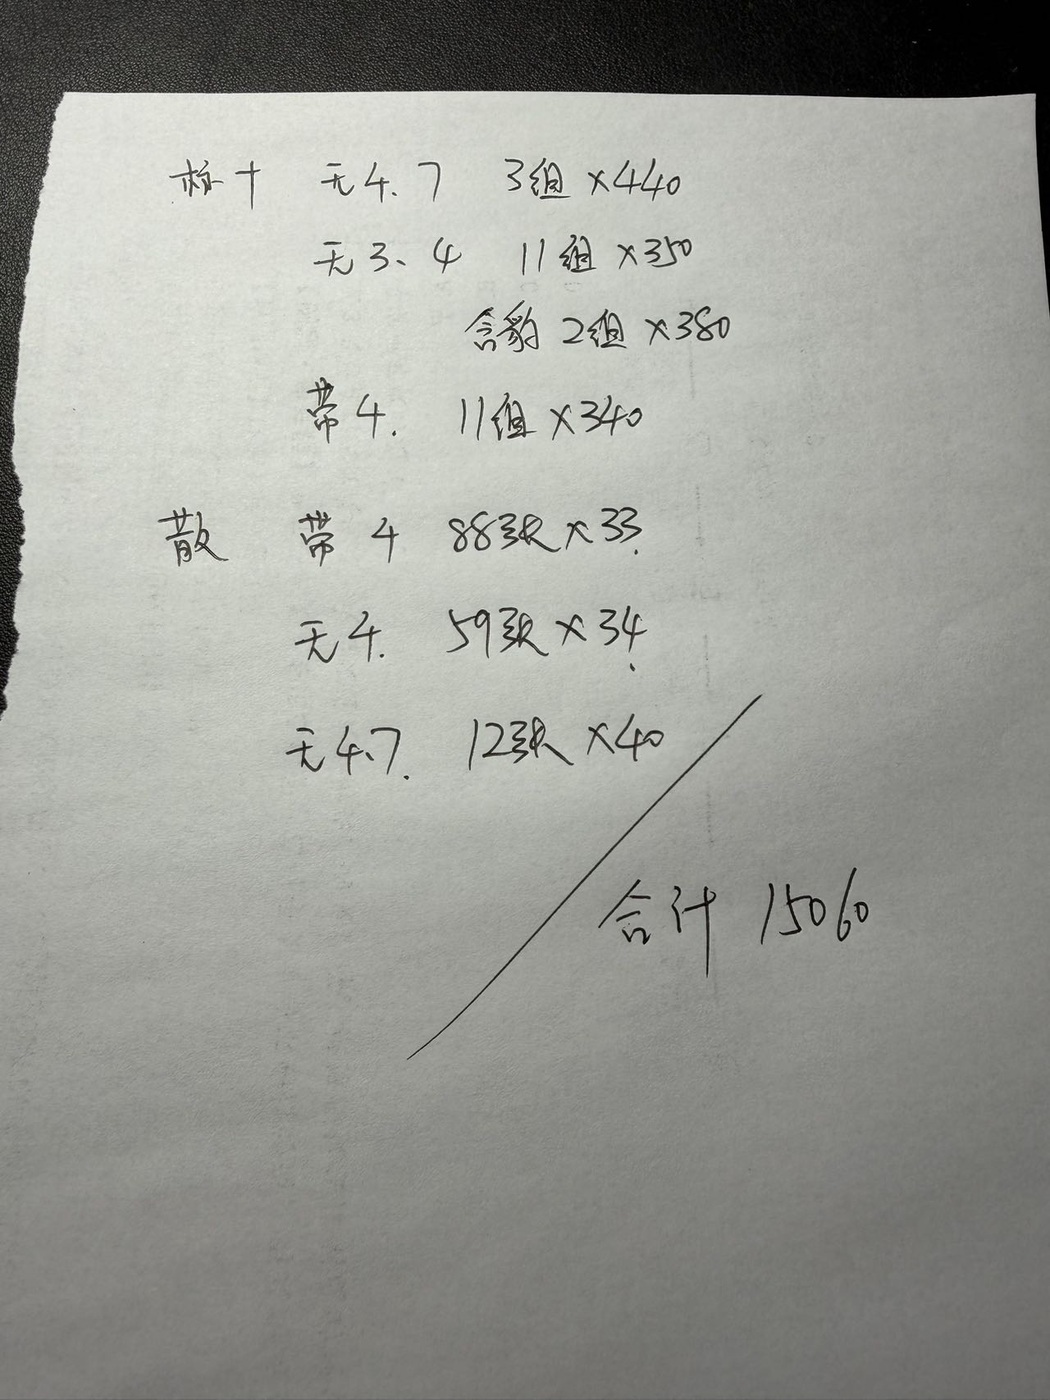 标十 无4.7 3组×440
无3、4 11组×350
含豹 2组×380
带4. 11组×340
散 带4 88张×33.
无4. 59张×34
无4.7. 12张×40
合计 15060